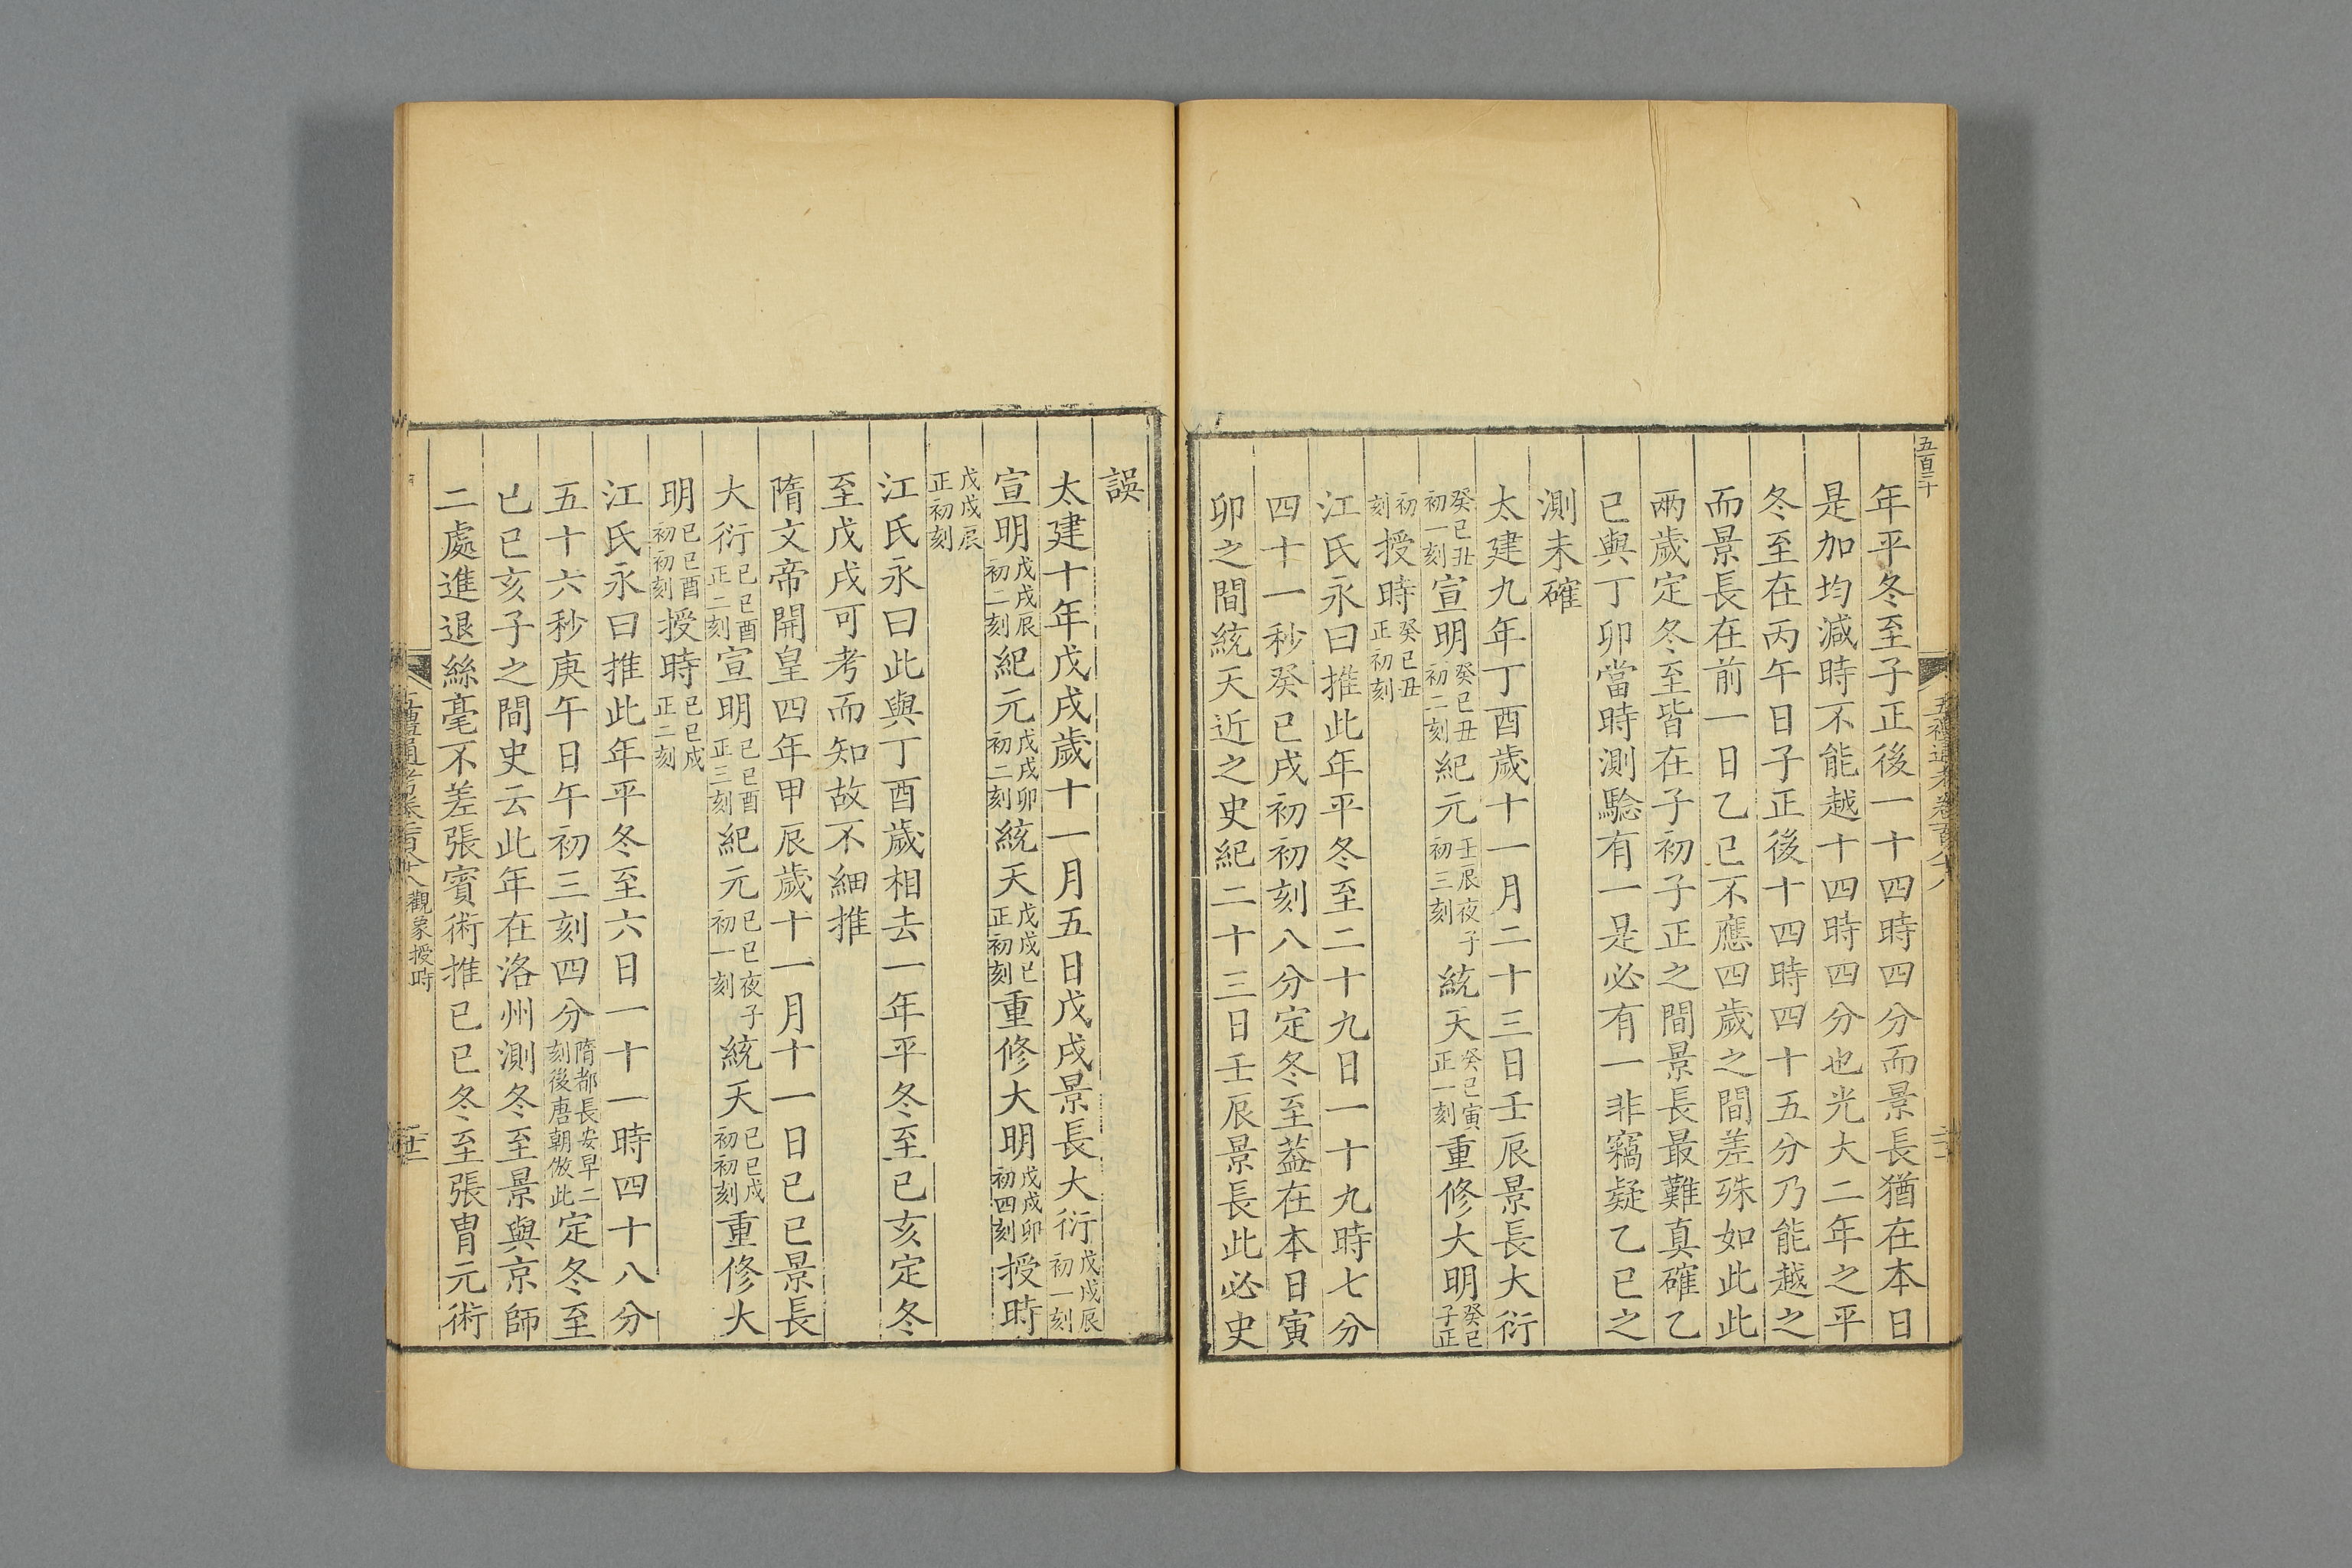 五百二十
年平冬至子正後一十四時四分而景長猶在本日
是加均減時不能越十四時四分也光大二年之平
冬至在丙午日子正後十四時四十五分乃能越之
而景長在前一日乙巳不應四歲之間差殊如此此
兩歲定冬至皆在子初子正之間景長最難真確乙
巳與丁卯當時測驗有一是必有一非竊疑乙巳之
測未確
太建九年丁酉歲十一月二十三日壬辰景長大衍
癸巳丑初一刻宣明癸巳丑初二刻紀元壬辰夜子初三刻統天癸巳寅正一刻重修大明癸巳子正
初刻授時癸巳丑正初刻
江氏永曰推此年平冬至二十九日一十九時七分
四十一秒癸巳戌初初刻八分定冬至蓋在本日寅
卯之間統天近之史紀二十三日壬辰景長此必史
誤
太建十年戊戌歲十一月五日戊戌景長大衍戊戌辰初一刻
宣明戊戌辰初二刻紀元戊戌卯初二刻統天戊戌巳正初刻重修大明戊戌卯初四刻授時
戊戌辰正初刻
江氏永曰此與丁酉歲相去一年平冬至己亥定冬
至戊戌可考而知故不細推
隋文帝開皇四年甲辰歲十一月十一日己巳景長
大衍己巳酉正二刻宣明己巳酉正三刻紀元己巳夜子初一刻統天己巳戌初初刻重修大
明己巳酉初初刻授時己巳戌正二刻
江氏永曰推此年平冬至六日一十一時四十八分
五十六秒庚午日午初三刻四分隋都長安早二刻後唐朝倣此定冬至
己巳亥子之間史云此年在洛州測冬至景與京師
二處進退絲毫不差張賓術推己巳冬至張胄元術
觀象授時